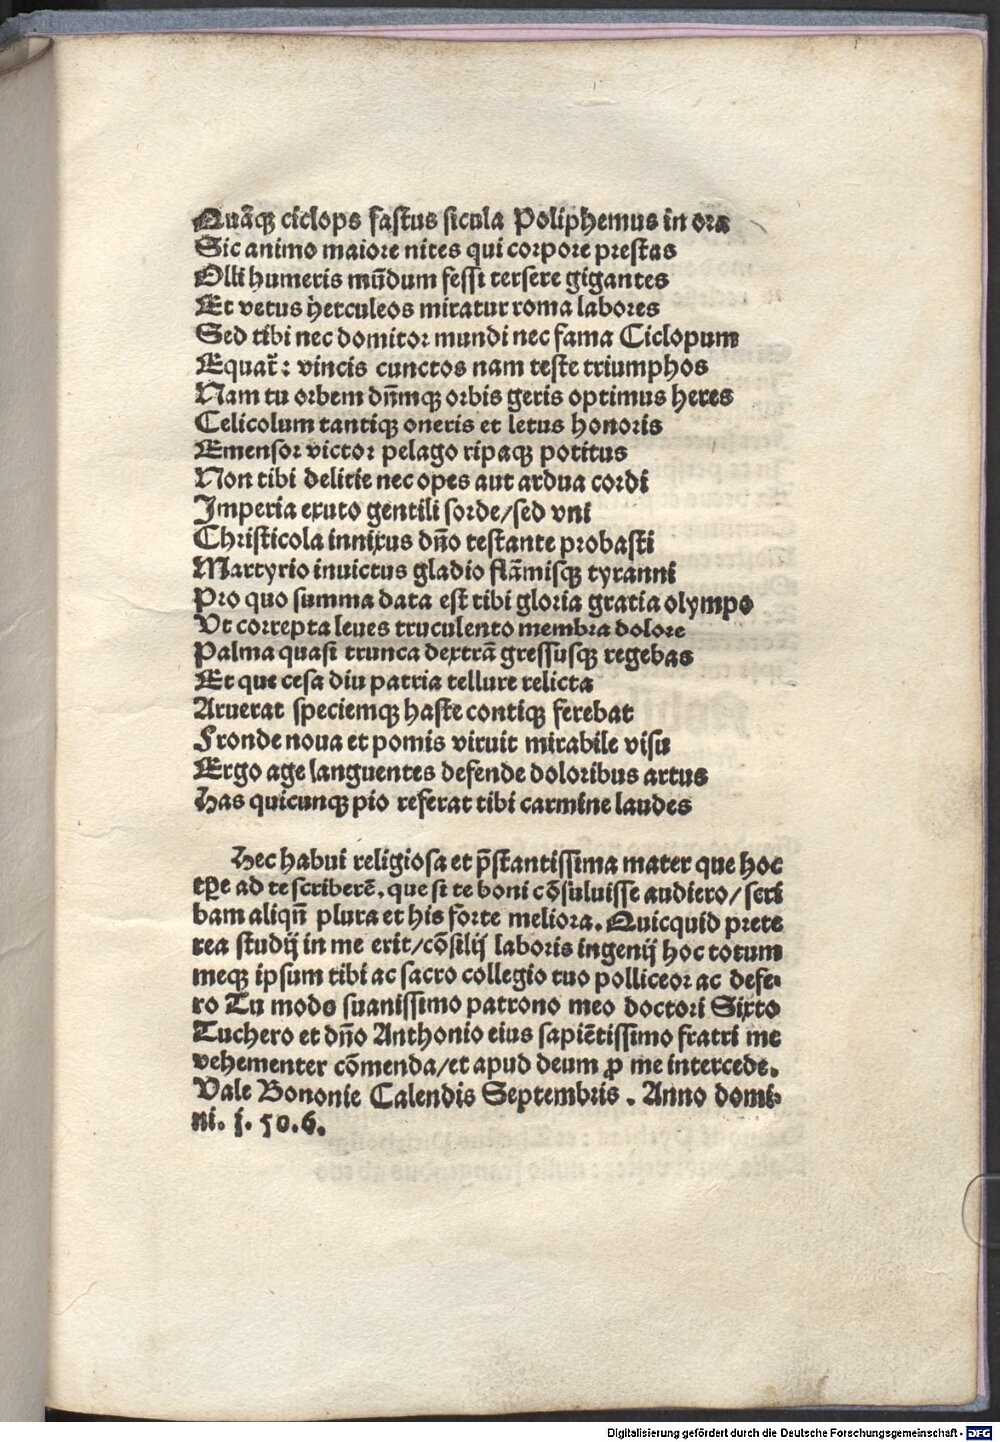 Quãqꝫ ciclops fastus sicula Poliphemus in ora
Sic animo maiore nites qui corpore prestas
Olli humeris mũdum fessi tersere gigantes
Et vetus herculeos miratur roma labores
Sed tibi nec domitor mundi nec fama Ciclopum
Equat̃: vincis cunctos nam teste triumphos
Nam tu orbem dñmqꝫ orbis geris optimus heres
Celicolum tantiqꝫ oneris et letus honoris
Emensor victor pelago ripaqꝫ potitus
Non tibi delitie nec opes aut ardua cordi
Imperia exuto gentili sorde/sed vni
Christicola innixus dño testante probasti
Martyrio inuictus gladio flãmisqꝫ tyranni
Pro quo summa data est tibi gloria gratia olympo
Vt correpta leues truculento membra dolore
Palma quasi trunca dextrã gressusqꝫ regebas
Et que cesa diu patria tellure relicta
Aruerat speciemqꝫ haste contiqꝫ ferebat
Fronde noua et pomis viruit mirabile visu
Ergo age languentes defende doloribus artus
Has quicunqꝫ pio referat tibi carmine laudes
Hec habui religiosa et p̃stantissima mater que hoc
tꝑe ad te scriberẽ, que si te boni cõsuluisse audiero/scri
bam aliqñ plura et his forte meliora. Quicquid prete
rea studij in me erit/cõsilij laboris ingenij hoc totum
meqꝫ ipsum tibi ac sacro collegio tuo polliceor ac defe-
ro Tu modo suauissimo patrono meo doctori Sixto
Tuchero et dño Anthonio eius sapiẽtissimo fratri me
vehementer cõmenda/et apud deum ꝓ me intercede.
Vale Bononie Calendis Septembris. Anno domi-
ni. j. 50.6.
Digitalisierung gefördert durch die Deutsche Forschungsgemeinschaft - DFG